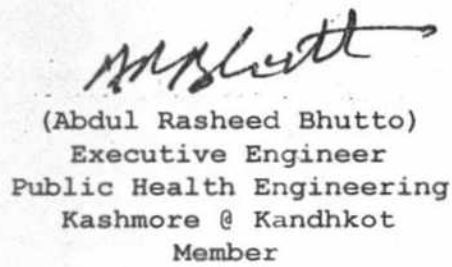 (Abdul Rasheed Bhutto)
Executive Engineer
Public Health Engineering
Kashmore @ Kandhkot
Member